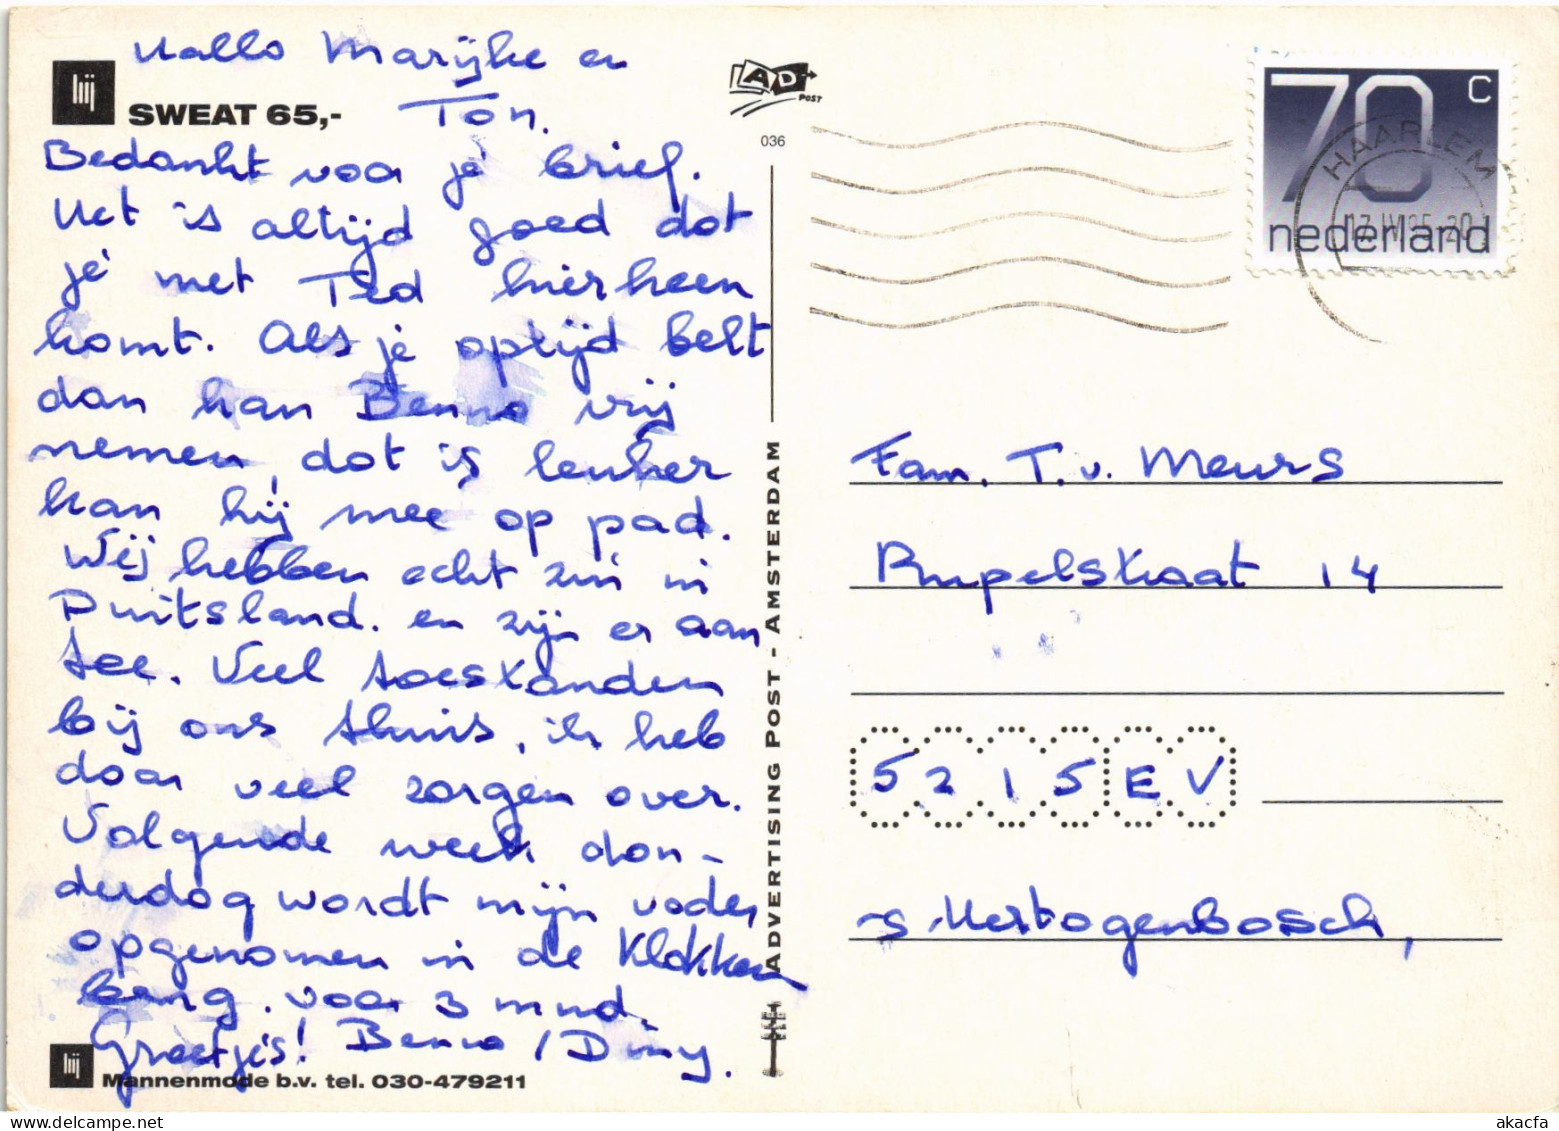 Hallo Marijke en
hij
SWEAT 65,-
Ton.
Bedankt voor je brief.
Het is altijd goed dat
je met Ted hierheen
komt. Als je optijd belt
dan kan Benno vrij
nemen, dat is leuker
kan hij mee op pad.
Wij hebben echt zin in
Duitsland. en zijn er aan
toe. Veel toestanden
bij ons thuis, ik heb
daar veel zorgen over.
Volgende week don-
derdag wordt mijn vader
opgenomen in de Klokken
berg. voor 3 mnd.
Groetjes! Benno / Diny.
hij
Mannenmode b.v. tel. 030-479211
AD POST
036
ADVERTISING POST - AMSTERDAM
70 c
nederland
HAARLEM
Fam. T. v. Meurs
Rupelstraat 14
5215 EV
s Hertogenbosch,
akacfa